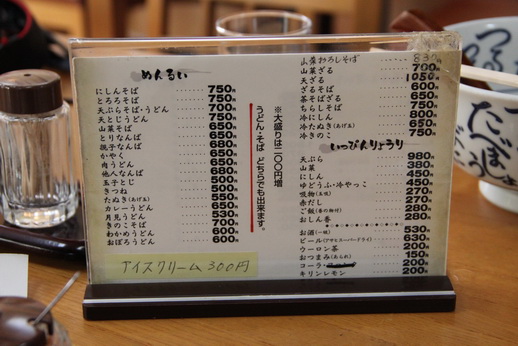 めんるい
にしんそば 750円
とろろそば 750円
天ぷらそば・うどん 700円
天とじうどん 750円
山菜そば 650円
とりなんば 650円
親子なんば 680円
かやく 650円
肉うどん 650円
他人なんば 680円
玉子とじ 500円
きつね 500円
たぬき(あげ玉) 550円
カレーうどん 650円
月見うどん 530円
きのこそば 700円
わかめうどん 600円
おぼろうどん 600円
アイスクリーム 300円
※大盛りは二〇〇円増
うどん・そば どちらでも出来ます。
山菜おろしそば 830円
山菜ざる 700円
天ざる 1050円
ざるそば 600円
茶そばざる 650円
ちらしそば 750円
冷にしん 800円
冷たぬき(あげ玉) 650円
冷きのこ 750円
いっぴんりょうり
天ぷら 980円
山菜 380円
にしん 450円
ゆどうふ・冷やっこ 450円
吸物 270円
赤だし 280円
ご飯(香の物付) 280円
おしん香 280円
お酒(一級) 530円
ビール(アサヒスーパードライ) 630円
ウーロン茶 200円
おつまみ(あられ) 150円
コーラ 200円
キリンレモン 200円